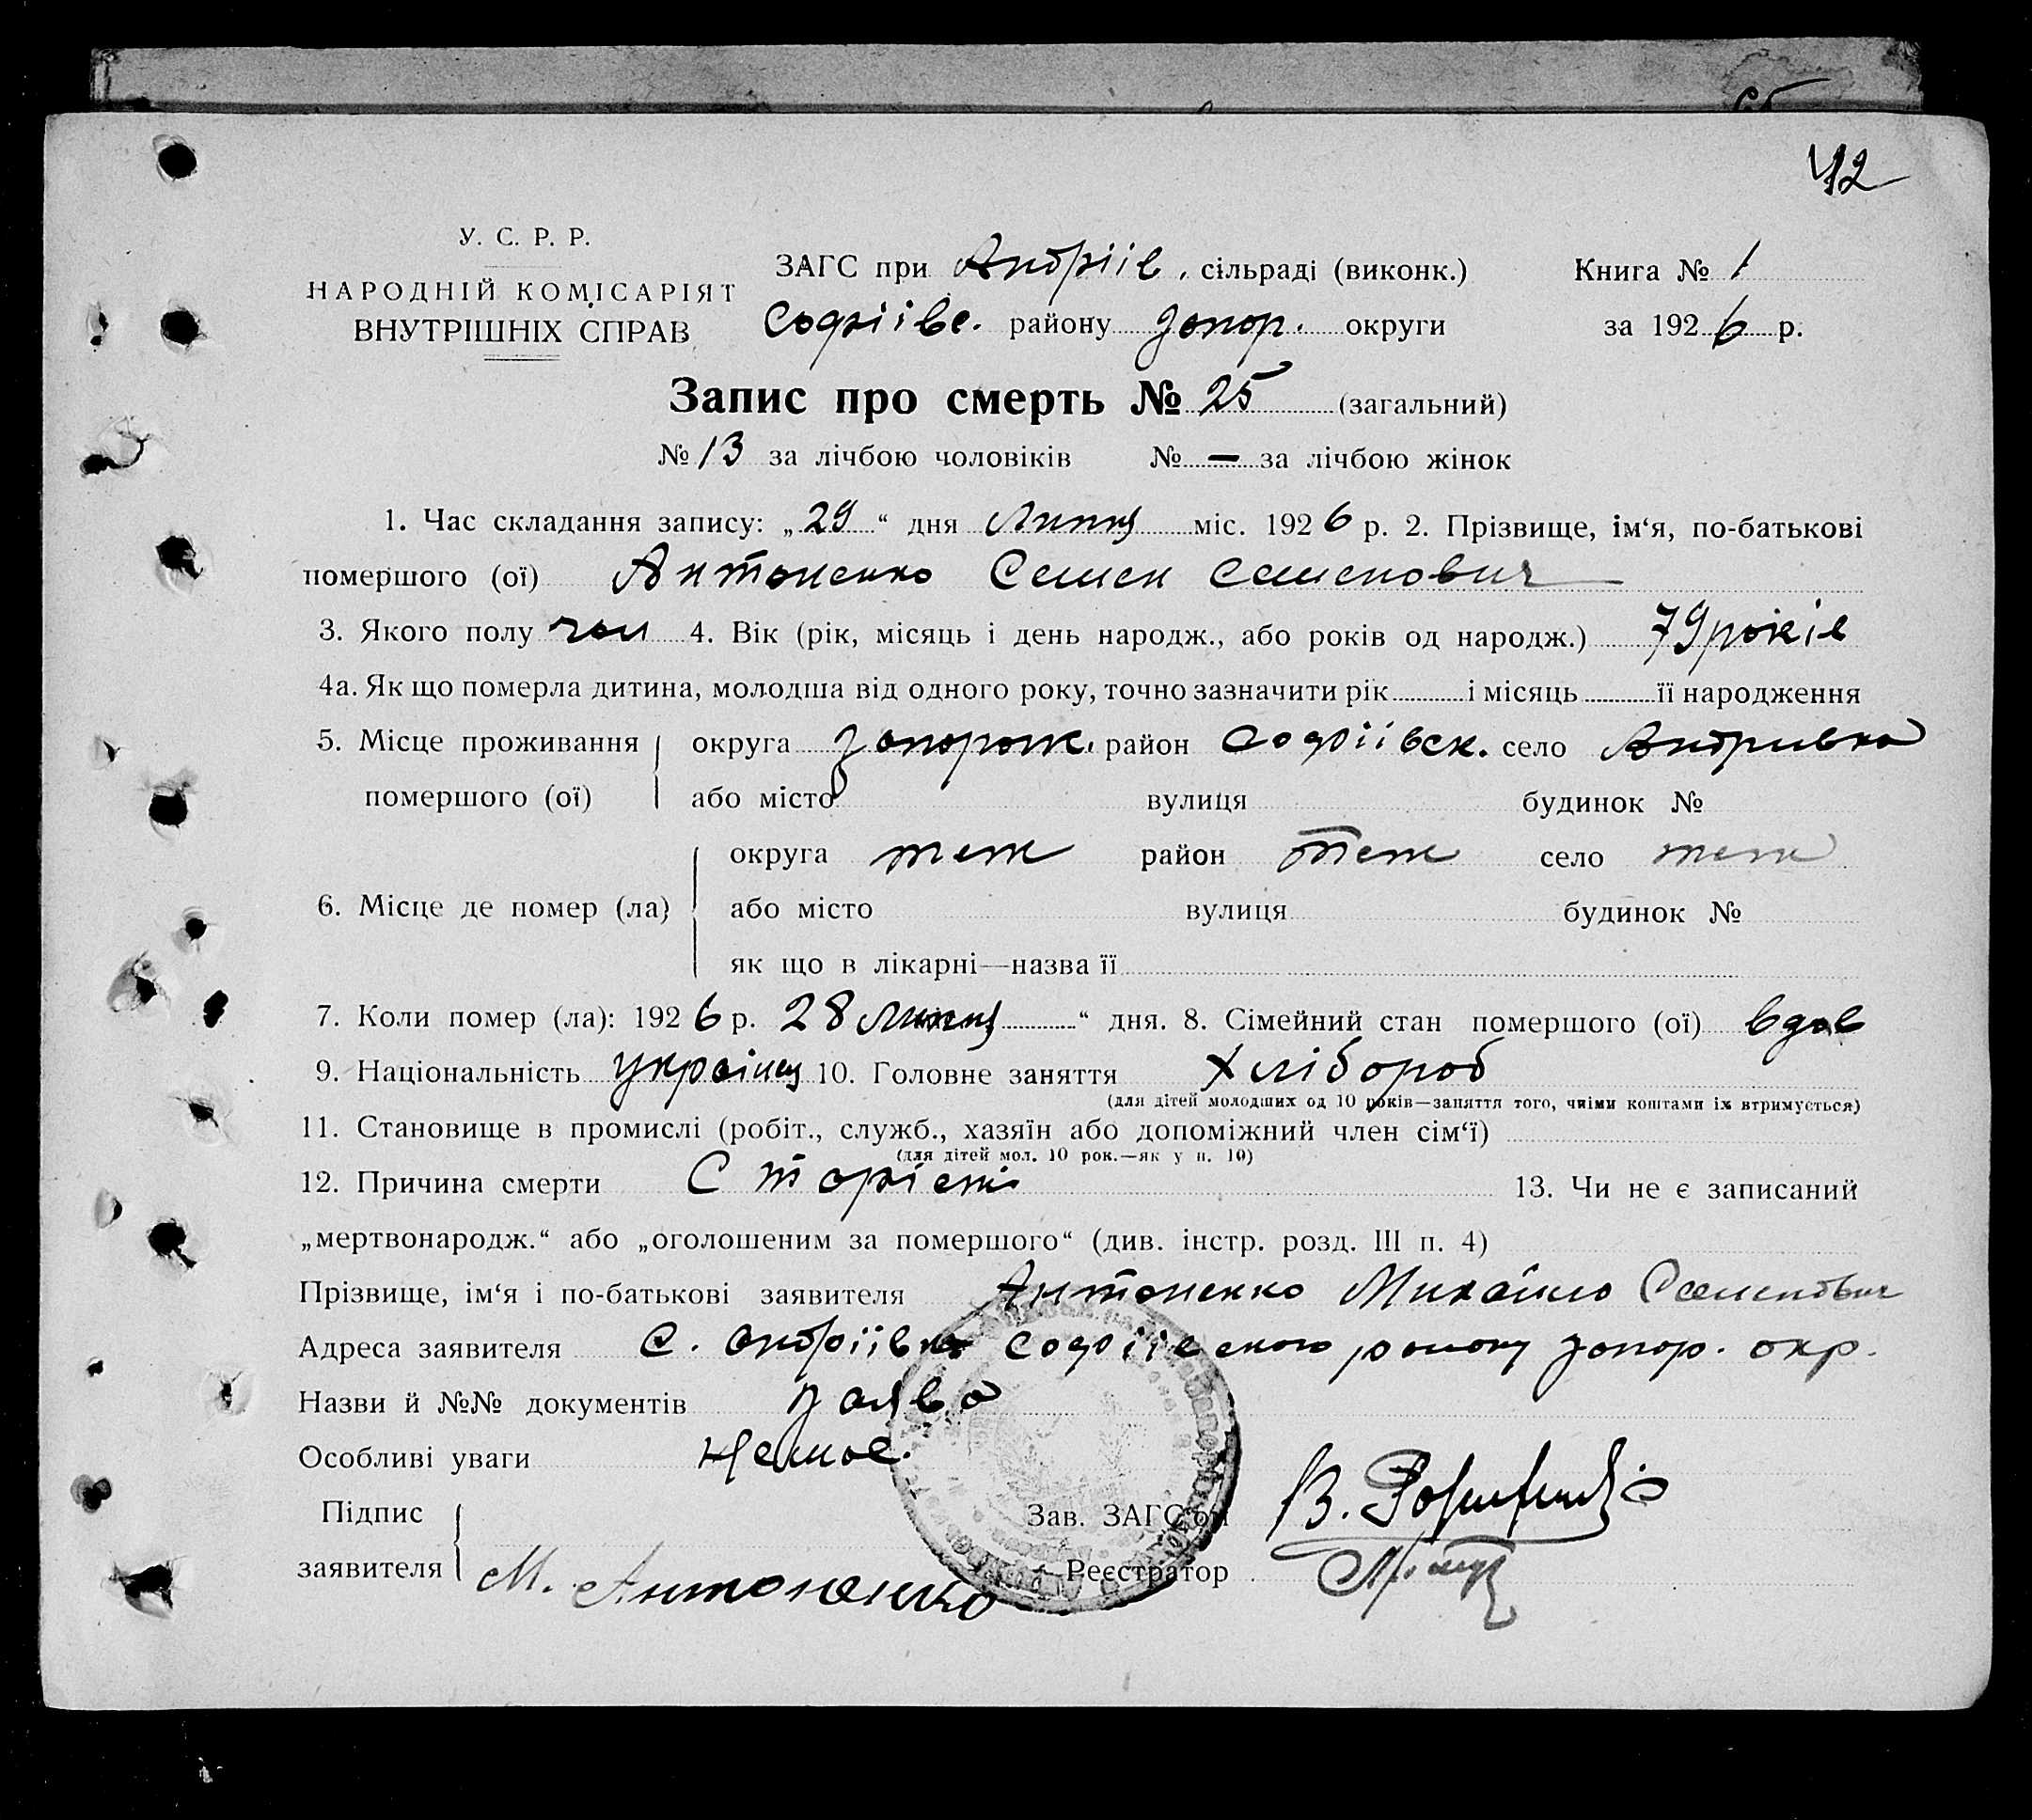 42
У. С. Р. Р.
НАРОДНІЙ КОМІСАРІЯТ
ВНУТРІШНІХ СПРАВ
ЗАГС при Андріїв. сільраді (виконк.) Книга № 1
Софіївс. району Запор. округи за 1926 р.
Запис про смерть № 25 (загальний)
№ 13 за лічбою чоловіків № — за лічбою жінок
1. Час складання запису: „29“ дня Липця міс. 1926 р. 2. Прізвище, ім‘я, по-батькові
помершого (ої) Антоненко Семен Семенович
3. Якого полу чол 4. Вік (рік, місяць і день народж., або років од народж.) 79 років
4а. Як що померла дитина, молодша від одного року, точно зазначити рік і місяць її народження
5. Місце проживання округа Запорож. район Софіївськ. село Андривка
помершого (ої) або місто вулиця будинок №
округа теж район теж село теж
6. Місце де помер (ла) або місто вулиця будинок №
як що в лікарні—назва її
7. Коли помер (ла): 1926 р. 28 Липця “ дня. 8. Сімейний стан помершого (ої) вдов
9. Національність Українец 10. Головне заняття Хлібороб
(для дітей молодших од 10 років—заняття того, чиїми коштами їх втримується)
11. Становище в промислі (робіт., служб., хазяїн або допоміжний член сім‘ї)
(для дітей мол. 10 рок.—як у п. 10)
12. Причина смерти Старість 13. Чи не є записаний
„мертвонародж.“ або „оголошеним за помершого“ (див. інстр. розд. III п. 4)
Прізвище, ім‘я і по-батькові заявителя Антоненко Михайло Семенович
Адреса заявителя С. Андріївка Софіївського району Запор. окр.
Назви й №№ документів заява
Особливі уваги Немає.
Підпис Зав. ЗАГС‘ом В.
заявителя М. Антоненко Реєстратор